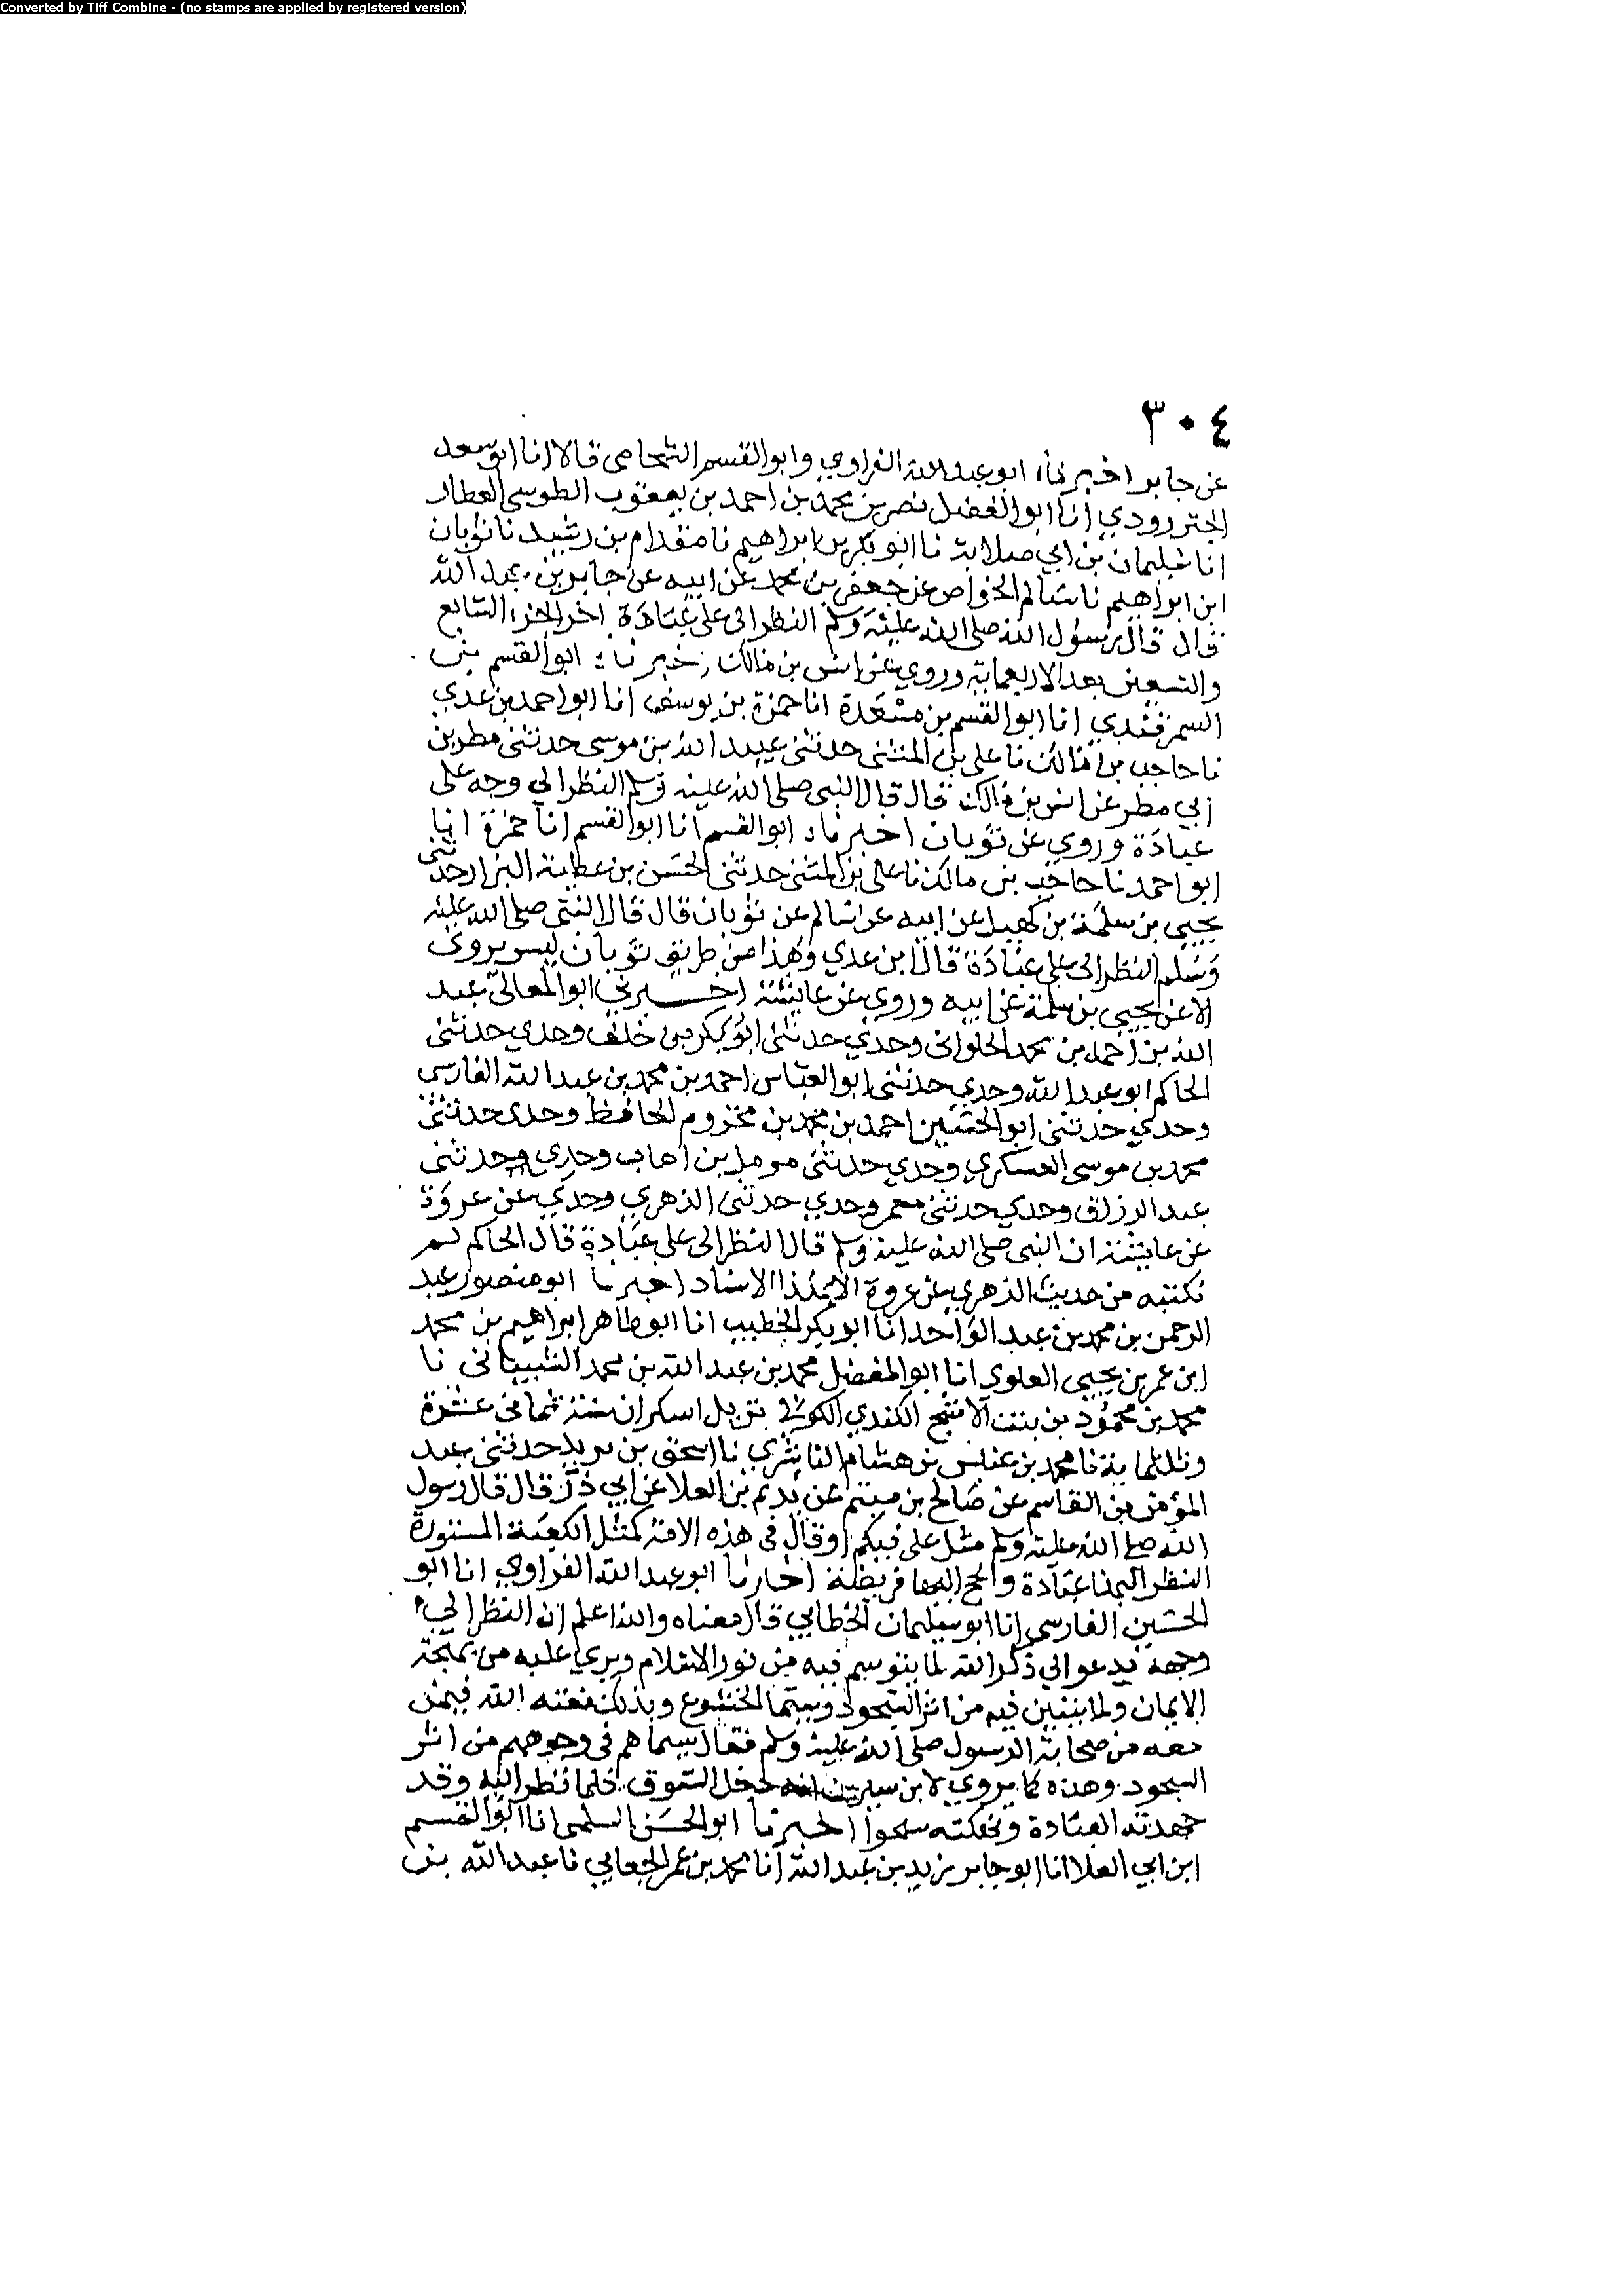 Converted by Tiff Combine - (no stamps are applied by registered version)
٣٠٤
عن جابر اخبرنا ابو عبد الله الفراوي وابو القسم الشحامي قالا انا ابو سعد
الجنزرودي انا ابو الفضل نصر بن محمد بن احمد بن يعقوب الطوسي العطار
انا سليمان بن ابي صلابة نا ابو بكر بن ابراهيم نا مقدام بن رشيد نا ثوبان
ابن ابراهيم نا سالم الخواص عن جعفر بن محمد عن ابيه عن جابر بن عبد الله
قال قال رسول الله صلى الله عليه وسلم النظر الى علي عبادة اخر الجزء السابع
والتسعين بعد الاربعماية وروي عن انس بن مالك اخبرنا ابو القسم بن
السمرقندي انا ابو القسم بن مسعدة انا حمزة بن يوسف انا ابو احمد بن عدي
نا حاجب بن مالك نا علي بن المثنى حدثني عبيد الله بن موسى حدثني مطر بن
ابي مطر عن انس بن مالك قال قال النبي صلى الله عليه وسلم النظر الى وجه علي
عبادة وروي عن ثوبان اخبرنا ابو القسم انا ابو القسم انا حمزة انا
ابو احمد نا حاجب بن مالك نا علي بن المثنى حدثني الحسن بن عطية البزار حدثني
يحيي بن سلمة بن كهيل عن ابيه عن سالم عن ثوبان قال قال النبي صلى الله عليه
وسلم النظر الى علي عبادة قال ابن عدي وهذا من طريق ثوبان ليس يروى
الا عن يحيي بن سلمة عن ابيه وروي عن عايشة اخبرني ابو المعالي عبد
الله بن احمد بن محمد الحلواني وحدي حدثني ابو بكر بن خلف وحدي حدثني
الحاكم ابو عبد الله وحدي حدثني ابو العباس احمد بن محمد بن عبد الله الفارسي
وحدي حدثني ابو الحسين احمد بن محمد بن مخزوم الحافظ وحدي حدثني
محمد بن موسى العسكري وحدي حدثني مومل بن اهاب وحدي حدثني
عبد الرزاق وحدي حدثني معمر وحدي حدثني الزهري وحدي عن عروة
عن عايشة ان النبي صلى الله عليه وسلم قال النظر الى علي عبادة قال الحاكم لم
نكتبه من حديث الزهري عن عروة الا بهذا الاسناد اخبرنا ابو منصور عبد
الرحمن بن محمد بن عبد الواحد انا ابو بكر الخطيب انا ابو طاهر ابراهيم بن محمد
ابن عمر بن يحيي العلوي انا ابو المفضل محمد بن عبد الله بن محمد الشيباني نا
محمد بن محمود بن بنت الاشج الكندي الكوفي نزيل اسكران سنة ثماني عشرة
وثلثماية نا محمد بن عنبس بن هشام الناشري نا اسحق بن يزيد حدثني عبد
المؤمن بن القاسم عن صالح بن ميثم عن يريم بن العلا عن ابي ذر قال قال رسول
الله صلى الله عليه وسلم مثل علي فيكم او قال في هذه الامة كمثل الكعبة المستورة
النظر اليها عبادة والحج اليها فريضة اخبرنا ابو عبد الله الفراوي انا ابو
الحسين الفارسي انا ابو سليمان الخطابي قال معناه والله اعلم ان النظر الى
وجهه يدعو الى ذكر الله لما يتوسم فيه من نور الاسلام ويرى عليه من بهجة
الايمان ولما يتبين فيه من اثر السجود وسيما الخشوع وبذلك نعته الله فيمن
معه من صحابة الرسول صلى الله عليه وسلم فقال سيماهم في وجوههم من اثر
السجود وهذه كما يروي لابن سيرين انه دخل السوق فلما نظر اليه وقد
جهدته العبادة ونهكته سبحوا اخبرنا ابو الحسن السلمي انا ابو القسم
ابن ابي العلا انا ابو جابر يزيد بن عبد الله انا محمد بن عمر الجعابي نا عبد الله بن